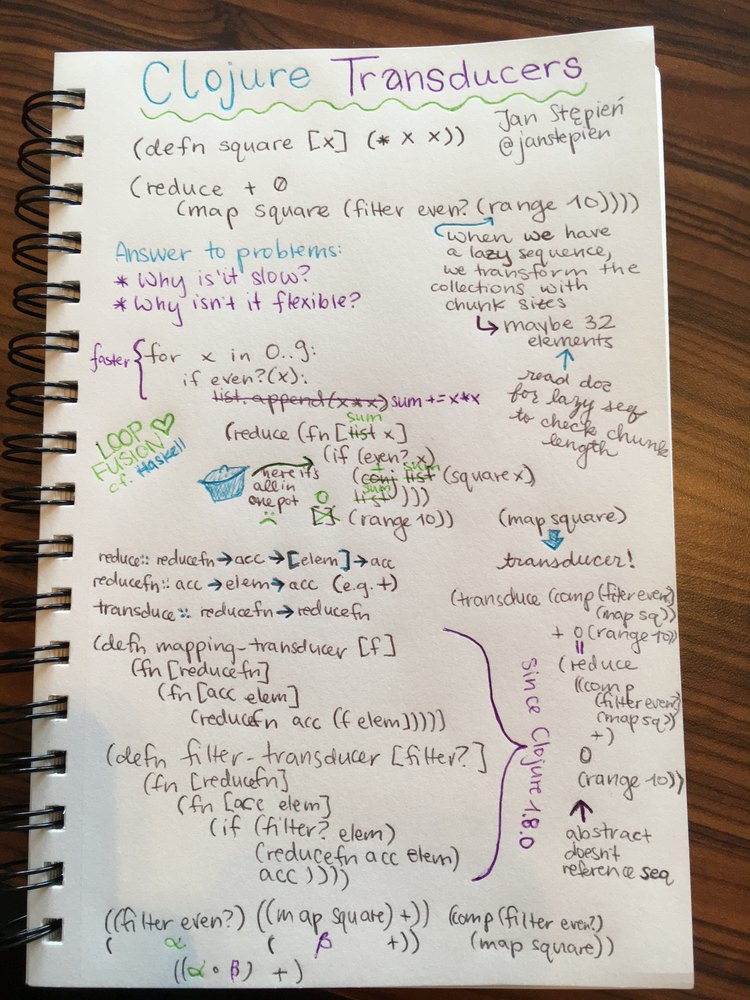 Clojure Transducers
Jan Stępień
@janstepien
(defn square [x] (* x x))
(reduce + 0
(map square (filter even? (range 10))))
when we have
a lazy sequence,
we transform the
collections with
chunk sizes
↳ maybe 32
elements
↑
read doc
for lazy seq
to check chunk
length
Answer to problems:
* Why is it slow?
* Why isn't it flexible?
faster { for x in 0..9:
if even?(x):
list.append(x*x) sum += x*x
LOOP
FUSION ♡
cf. Haskell
sum
(reduce (fn [list x]
(if (even? x)
+ sum
(conj list (square x)
sum
list))))
0
[] (range 10))
here it's
all in
one pot
☹
(map square)
transducer!
reduce:: reducefn → acc → [elem] → acc
reducefn:: acc → elem → acc (e.g. +)
transduce:: reducefn → reducefn
(transduce (comp (filter even?)
(map sq))
+ 0 (range 10))
=
(reduce
((comp
(filter even?)
(map sq))
+)
0
(range 10))
↑
abstract
doesn't
reference seq
(defn mapping-transducer [f]
(fn [reducefn]
(fn [acc elem]
(reducefn acc (f elem))))]
(defn filter-transducer [filter?]
(fn [reducefn]
(fn [acc elem]
(if (filter? elem)
(reducefn acc elem)
acc))))
since Clojure 1.8.0
((filter even?) ((map square) +)) (comp (filter even?)
( α ( β +)) (map square))
((α ∘ β) +)